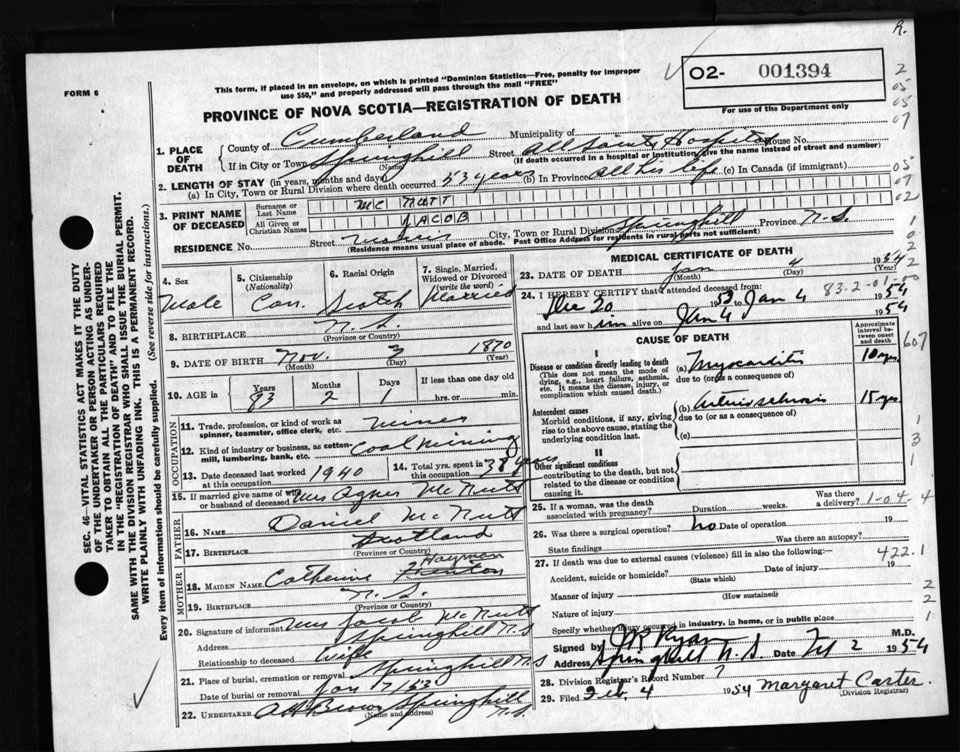 R.
FORM 6
This form, if placed in an envelope, on which is printed "Dominion Statistics—Free, penalty for improper
use $50," and properly addressed will pass through the mail "FREE"
O2- 001394
For use of the Department only
PROVINCE OF NOVA SCOTIA—REGISTRATION OF DEATH
1. PLACE OF DEATH
County of Cumberland Municipality of
If in City or Town Springhill (Name) Street All Saints Hospital House No.
(If death occurred in a hospital or institution, give the name instead of street and number)
2. LENGTH OF STAY (in years, months and days)
(a) In City, Town or Rural Division where death occurred 53 years (b) In Province all his life (c) In Canada (if immigrant)
3. PRINT NAME OF DECEASED
Surname or Last Name MC NUTT
All Given or Christian Names JACOB
RESIDENCE No. Street City, Town or Rural Division Springhill Province N.S.
(Residence means usual place of abode. Post Office Address for residents in rural parts not sufficient)
4. Sex Male
5. Citizenship (Nationality) Can.
6. Racial Origin Scotch
7. Single, Married, Widowed or Divorced (write the word) Married
8. BIRTHPLACE N.S. (Province or Country)
9. DATE OF BIRTH Nov. 3 1870
(Month) (Day) (Year)
10. AGE in Years 83 Months 2 Days 1 If less than one day old hrs. or min.
OCCUPATION
11. Trade, profession, or kind of work as spinner, teamster, office clerk, etc. miner
12. Kind of industry or business, as cotton-mill, lumbering, bank, etc. Coal Mining
13. Date deceased last worked at this occupation 1940
14. Total yrs. spent in this occupation 38 years
15. If married give name of wife or husband of deceased Mrs Agnes McNutt
FATHER
16. Name Daniel McNutt
17. Birthplace Scotland (Province or Country)
MOTHER
18. Maiden Name Catherine Hayman
19. Birthplace N.S. (Province or Country)
20. Signature of informant Mrs Jacob McNutt
Address Springhill N.S
Relationship to deceased Wife
21. Place of burial, cremation or removal Springhill N.S
Date of burial or removal Jan 7/53
22. Undertaker AH Brown Springhill N.S. (Name and address)
MEDICAL CERTIFICATE OF DEATH
23. DATE OF DEATH Jan 4 1954
(Month) (Day) (Year)
24. I HEREBY CERTIFY that I attended deceased from: 83-2-01
Dec 20 1953 Jan 4 1954
and last saw him alive on Jan 4 1954
CAUSE OF DEATH
Approximate interval between onset and death
I
Disease or condition directly leading to death (a) Myocarditis 10 yrs.
(This does not mean the mode of dying, e.g., heart failure, asthenia, etc. It means the disease, injury, or complication which caused death.)
due to (or as a consequence of)
Antecedent causes
Morbid conditions, if any, giving rise to the above cause, stating the underlying condition last.
(b) Arteriosclerosis 15 yrs
due to (or as a consequence of)
(c)
II
Other significant conditions contributing to the death, but not related to the disease or condition causing it.
607
25. If a woman, was the death associated with pregnancy? Duration weeks. Was there a delivery? 1-04-4
26. Was there a surgical operation? no Date of operation 19
State findings Was there an autopsy?
27. If death was due to external causes (violence) fill in also the following:— 422.1
Accident, suicide or homicide? (State which) Date of injury 19
Manner of injury (How sustained)
Nature of injury
Specify whether injury occurred in industry, in home, or in public place
Signed by JR Ryan M.D.
Address Springhill N.S. Date 2 1954
28. Division Registrar's Record Number 7
29. Filed Feb. 4 1954 Margaret Carter.
(Division Registrar)
SEC. 46—VITAL STATISTICS ACT MAKES IT THE DUTY
OF THE UNDERTAKER OR PERSON ACTING AS UNDER-
TAKER TO OBTAIN ALL THE PARTICULARS REQUIRED
IN THE "REGISTRATION OF DEATH" AND TO FILE THE
SAME WITH THE DIVISION REGISTRAR WHO SHALL ISSUE THE BURIAL PERMIT.
WRITE PLAINLY WITH UNFADING INK. THIS IS A PERMANENT RECORD.
Every item of information should be carefully supplied. (See reverse side for instructions.)